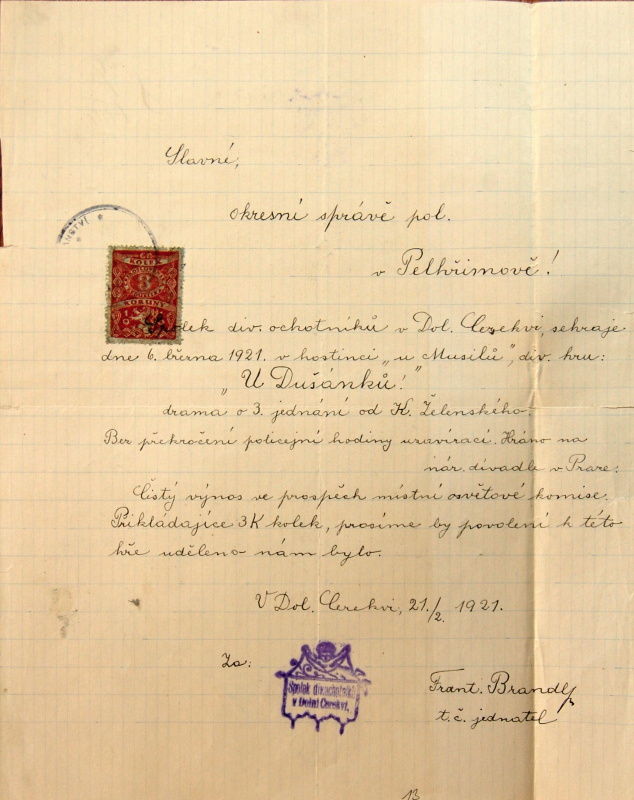 Slavné,
okresní správě pol.
v Pelhřimově!
KOLEK
3
KORUNY
Spolek div. ochotníků v Dol. Cerekvi, sehraje
dne 6. března 1921. v hostinci „u Musilů", div. hru:
„U Dušánků!"
drama o 3. jednání od K. Želenského.
Bez překročení policejní hodiny uzavírací. Hráno na
nár. divadle v Praze.
Čistý výnos ve prospěch místní osvětové komise.
Přikládajíce 3K kolek, prosíme by povolení k této
hře uděleno nám bylo.
V Dol. Cerekvi, 21./2. 1921.
Za:
Spolek div.ochotníků
v Dolní Cerekvi.
Frant. Brandl
t. č. jednatel
13